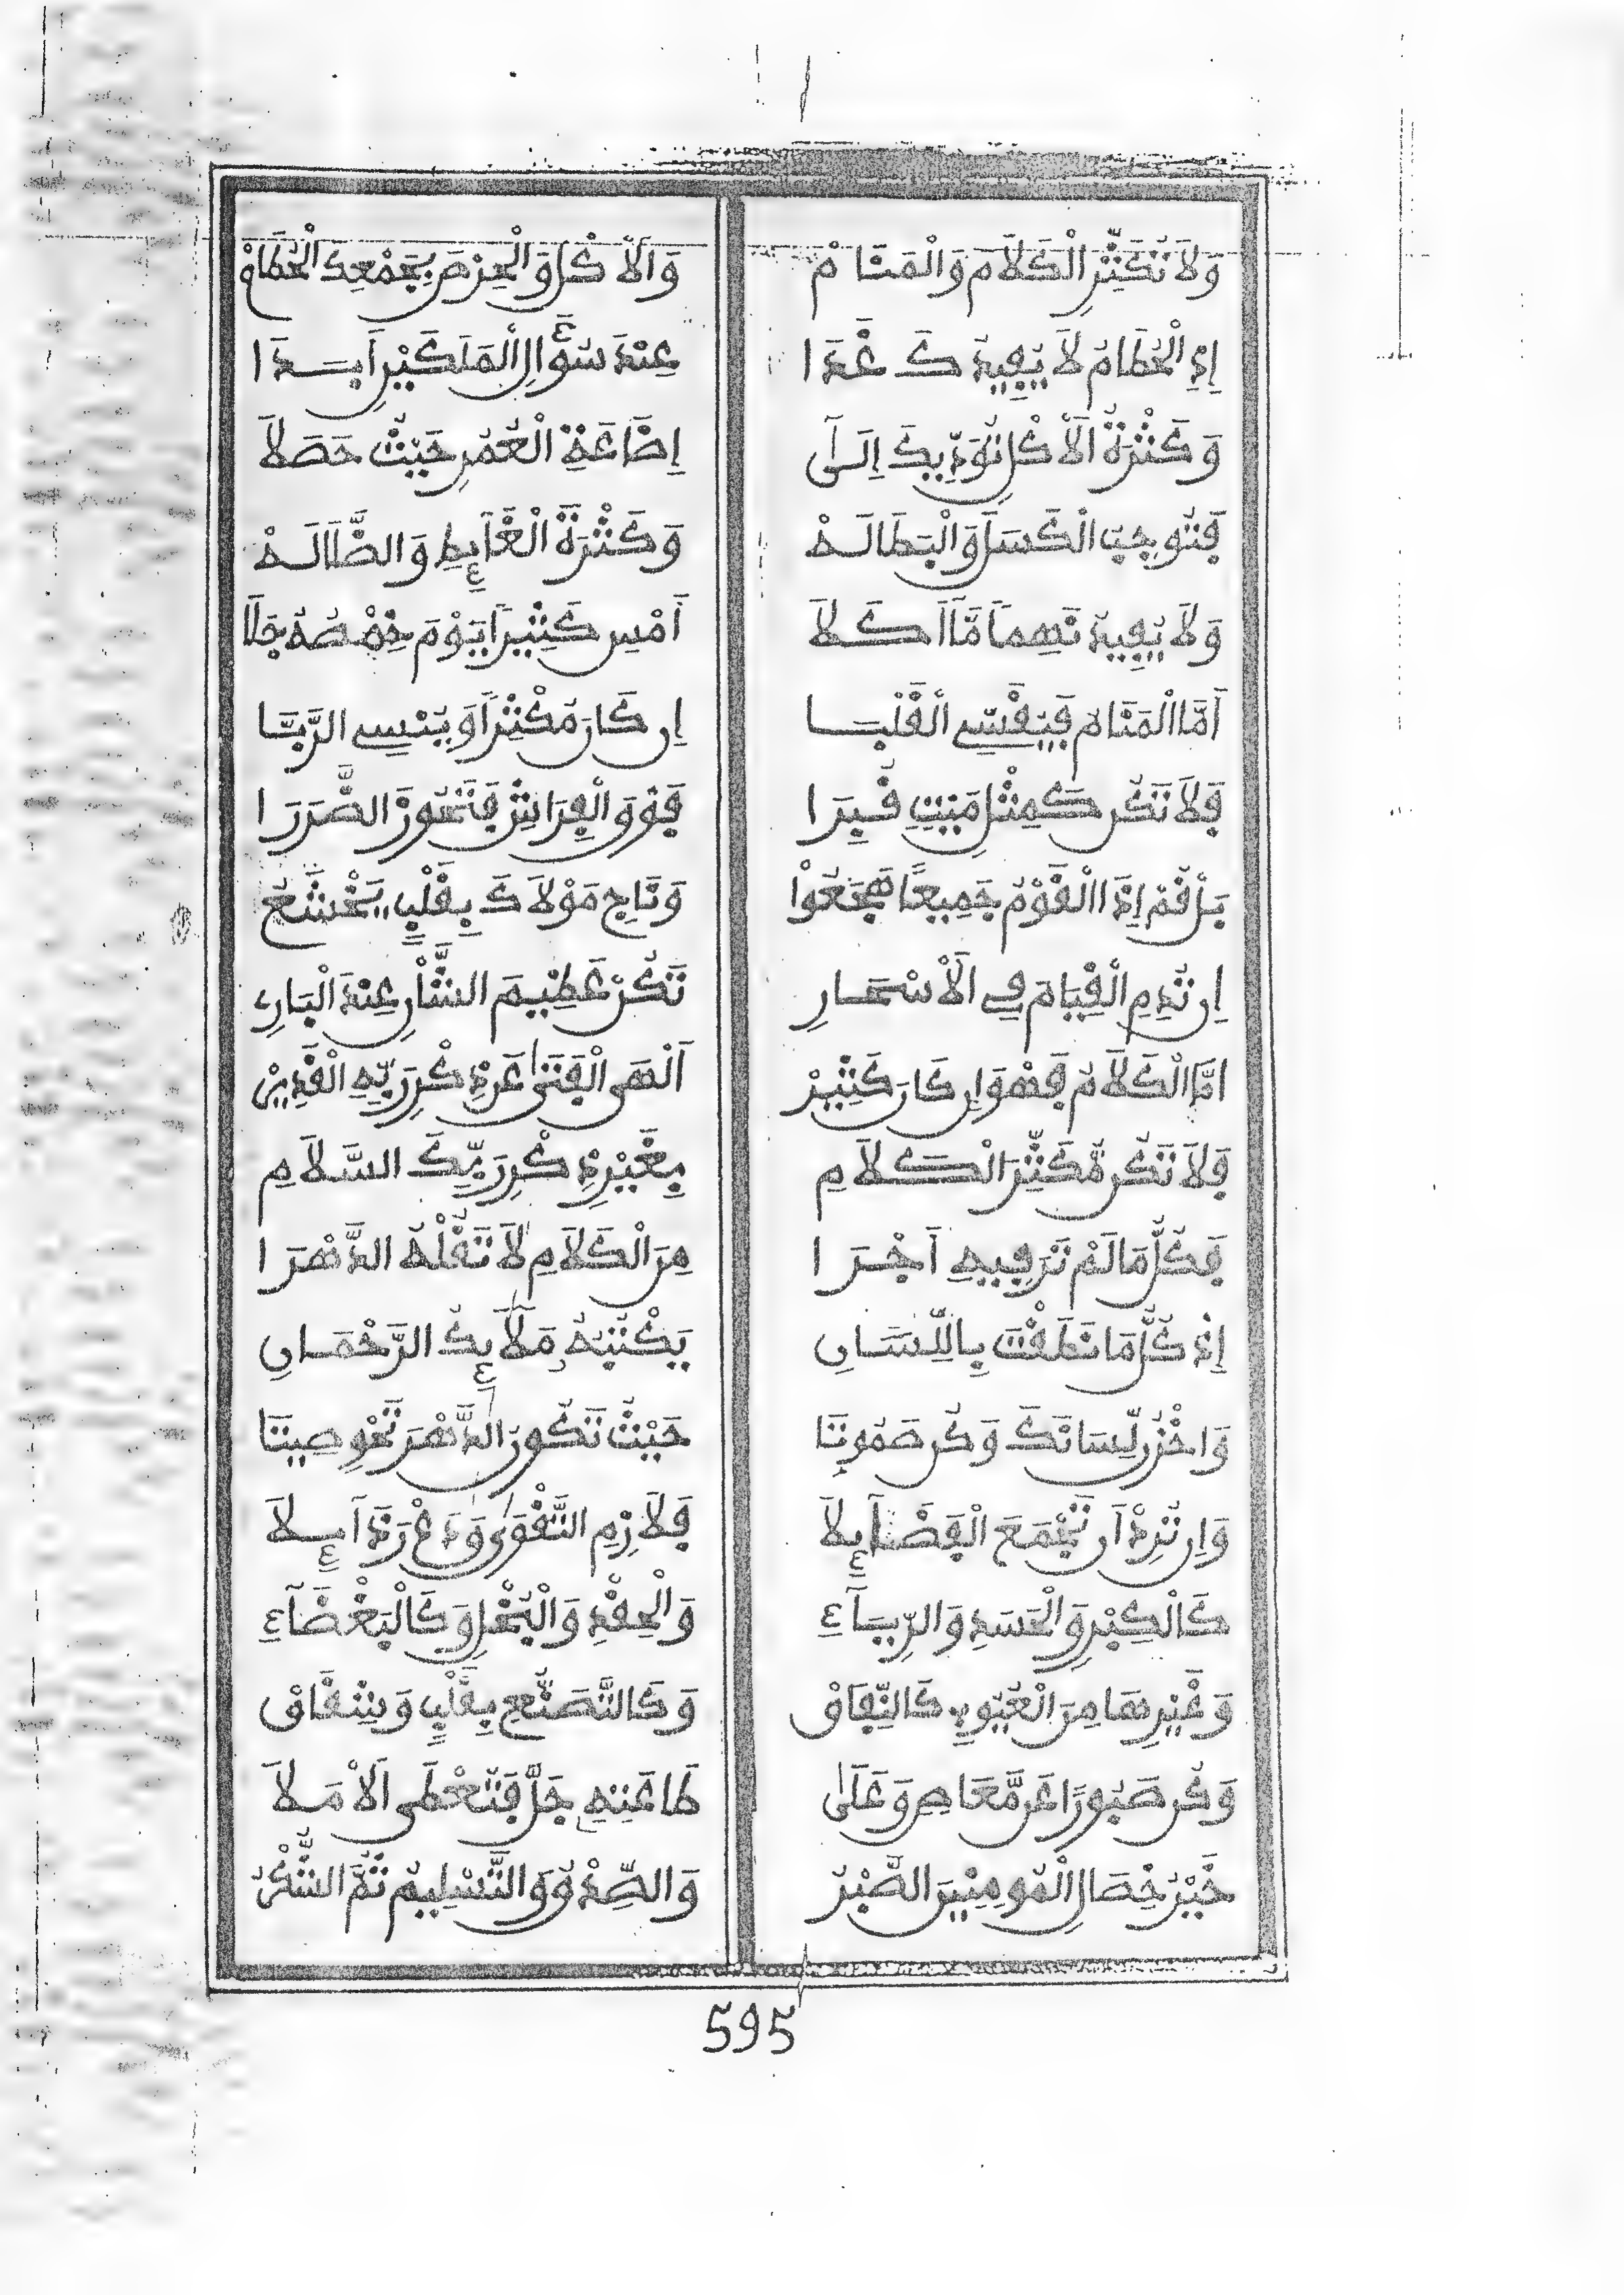 وَلَا تُكَثِّرِ الْكَلَامَ وَالْمَنَامْ وَالْأَكْلَ وَالْحِرْصَ بِجَمْعِكَ الْحُطَامْ
إِذِ الْحُطَامُ لَا يُفِيدُكَ غَدَا عِنْدَ سُؤَالِ الْمَلَكَيْنِ أَبَدَا
وَكَثْرَةُ الْأَكْلِ تُؤَدِّي بِكَ إِلَى إِضَاعَةِ الْعُمُرِ حَيْثُ حَصَلَا
فَتُوجِبُ الْكَسَلَ وَالْبَطَالَهْ وَكَثْرَةَ الْغَائِطِ وَالضَّلَالَهْ
وَلَا يُفِيدُ نَهِمًا مَّا أَكَلَا أَمْسِ كَثِيرًا يَوْمَ خِمْصُهُ جَلَا
أَمَّا الْمَنَامُ فَيُقَسِّي الْقَلْبَا إِن كَانَ مُكْثِرًا وَيُنْسِي الرَّبَّا
فَلَا تَكُن كَمِثْلِ مَيْتٍ قُبِرَا فَوْقَ الْفِرَاشِ فَتَحُوزَ الضَّرَرَا
بَلْ قُمْ إِذَا الْقَوْمُ جَمِيعًا هَجَعُوا وَنَاجِ مَوْلَاكَ بِقَلْبٍ يَخْشَعُ
إِن تُدِمِ الْقِيَامَ فِي الْأَسْحَارِ تَكُنْ عَظِيمَ الشَّأْنِ عِنْدَ الْبَارِي
أَمَّا الْكَلَامُ فَهْوَ إِن كَانَ كَثِيرْ أَلْهَى الْفَتَى عَن ذِكْرِ رَبِّهِ الْقَدِيرْ
فَلَا تَكُن مُّكَثِّرَ الْكَلَامِ بِغَيْرِ ذِكْرِ رَبِّكَ السَّلَامِ
فَكُلُّ مَا لَمْ تَرَ فِيهِ أَجْرَا مِنَ الْكَلَامِ لَا تَقُلْهُ الدَّهْرَا
إِذْ كُلُّ مَا نَطَقْتَ بِاللِّسَانِ يَكْتُبُهُ مَلَائِكُ الرَّحْمَانِ
وَاخْزُن لِّسَانَكَ وَكُن صَمُوتَا حَيْثُ تَكُونُ الدَّهْرَ تَحْوِ صِيتَا
وَإِن تُرِدْ أَن تَجْمَعَ الْفَضَائِلَا فَلَازِمِ التَّقْوَى وَدَعْ رَذَائِلَا
كَالْكِبْرِ وَالْحَسَدِ وَالرِّيَاءِ وَالْحِقْدِ وَالْبُخْلِ وَكَالْبَغْضَاءِ
وَغَيْرِهَا مِنَ الْعُيُوبِ كَالنِّفَاقْ وَكَالتَّصَنُّعِ بِقَلْبٍ وَشِقَاقْ
وَكُن صَبُورًا عَن مَّعَاصِي وَعَلَى طَاعَتِهِ جَلَّ فَتُعْطَى الْأَمَلَا
خَيْرُ خِصَالِ الْمُومِنِينَ الصَّبْرُ وَالصِّدْقُ وَالتَّسْلِيمُ ثُمَّ الشُّكْرُ
595